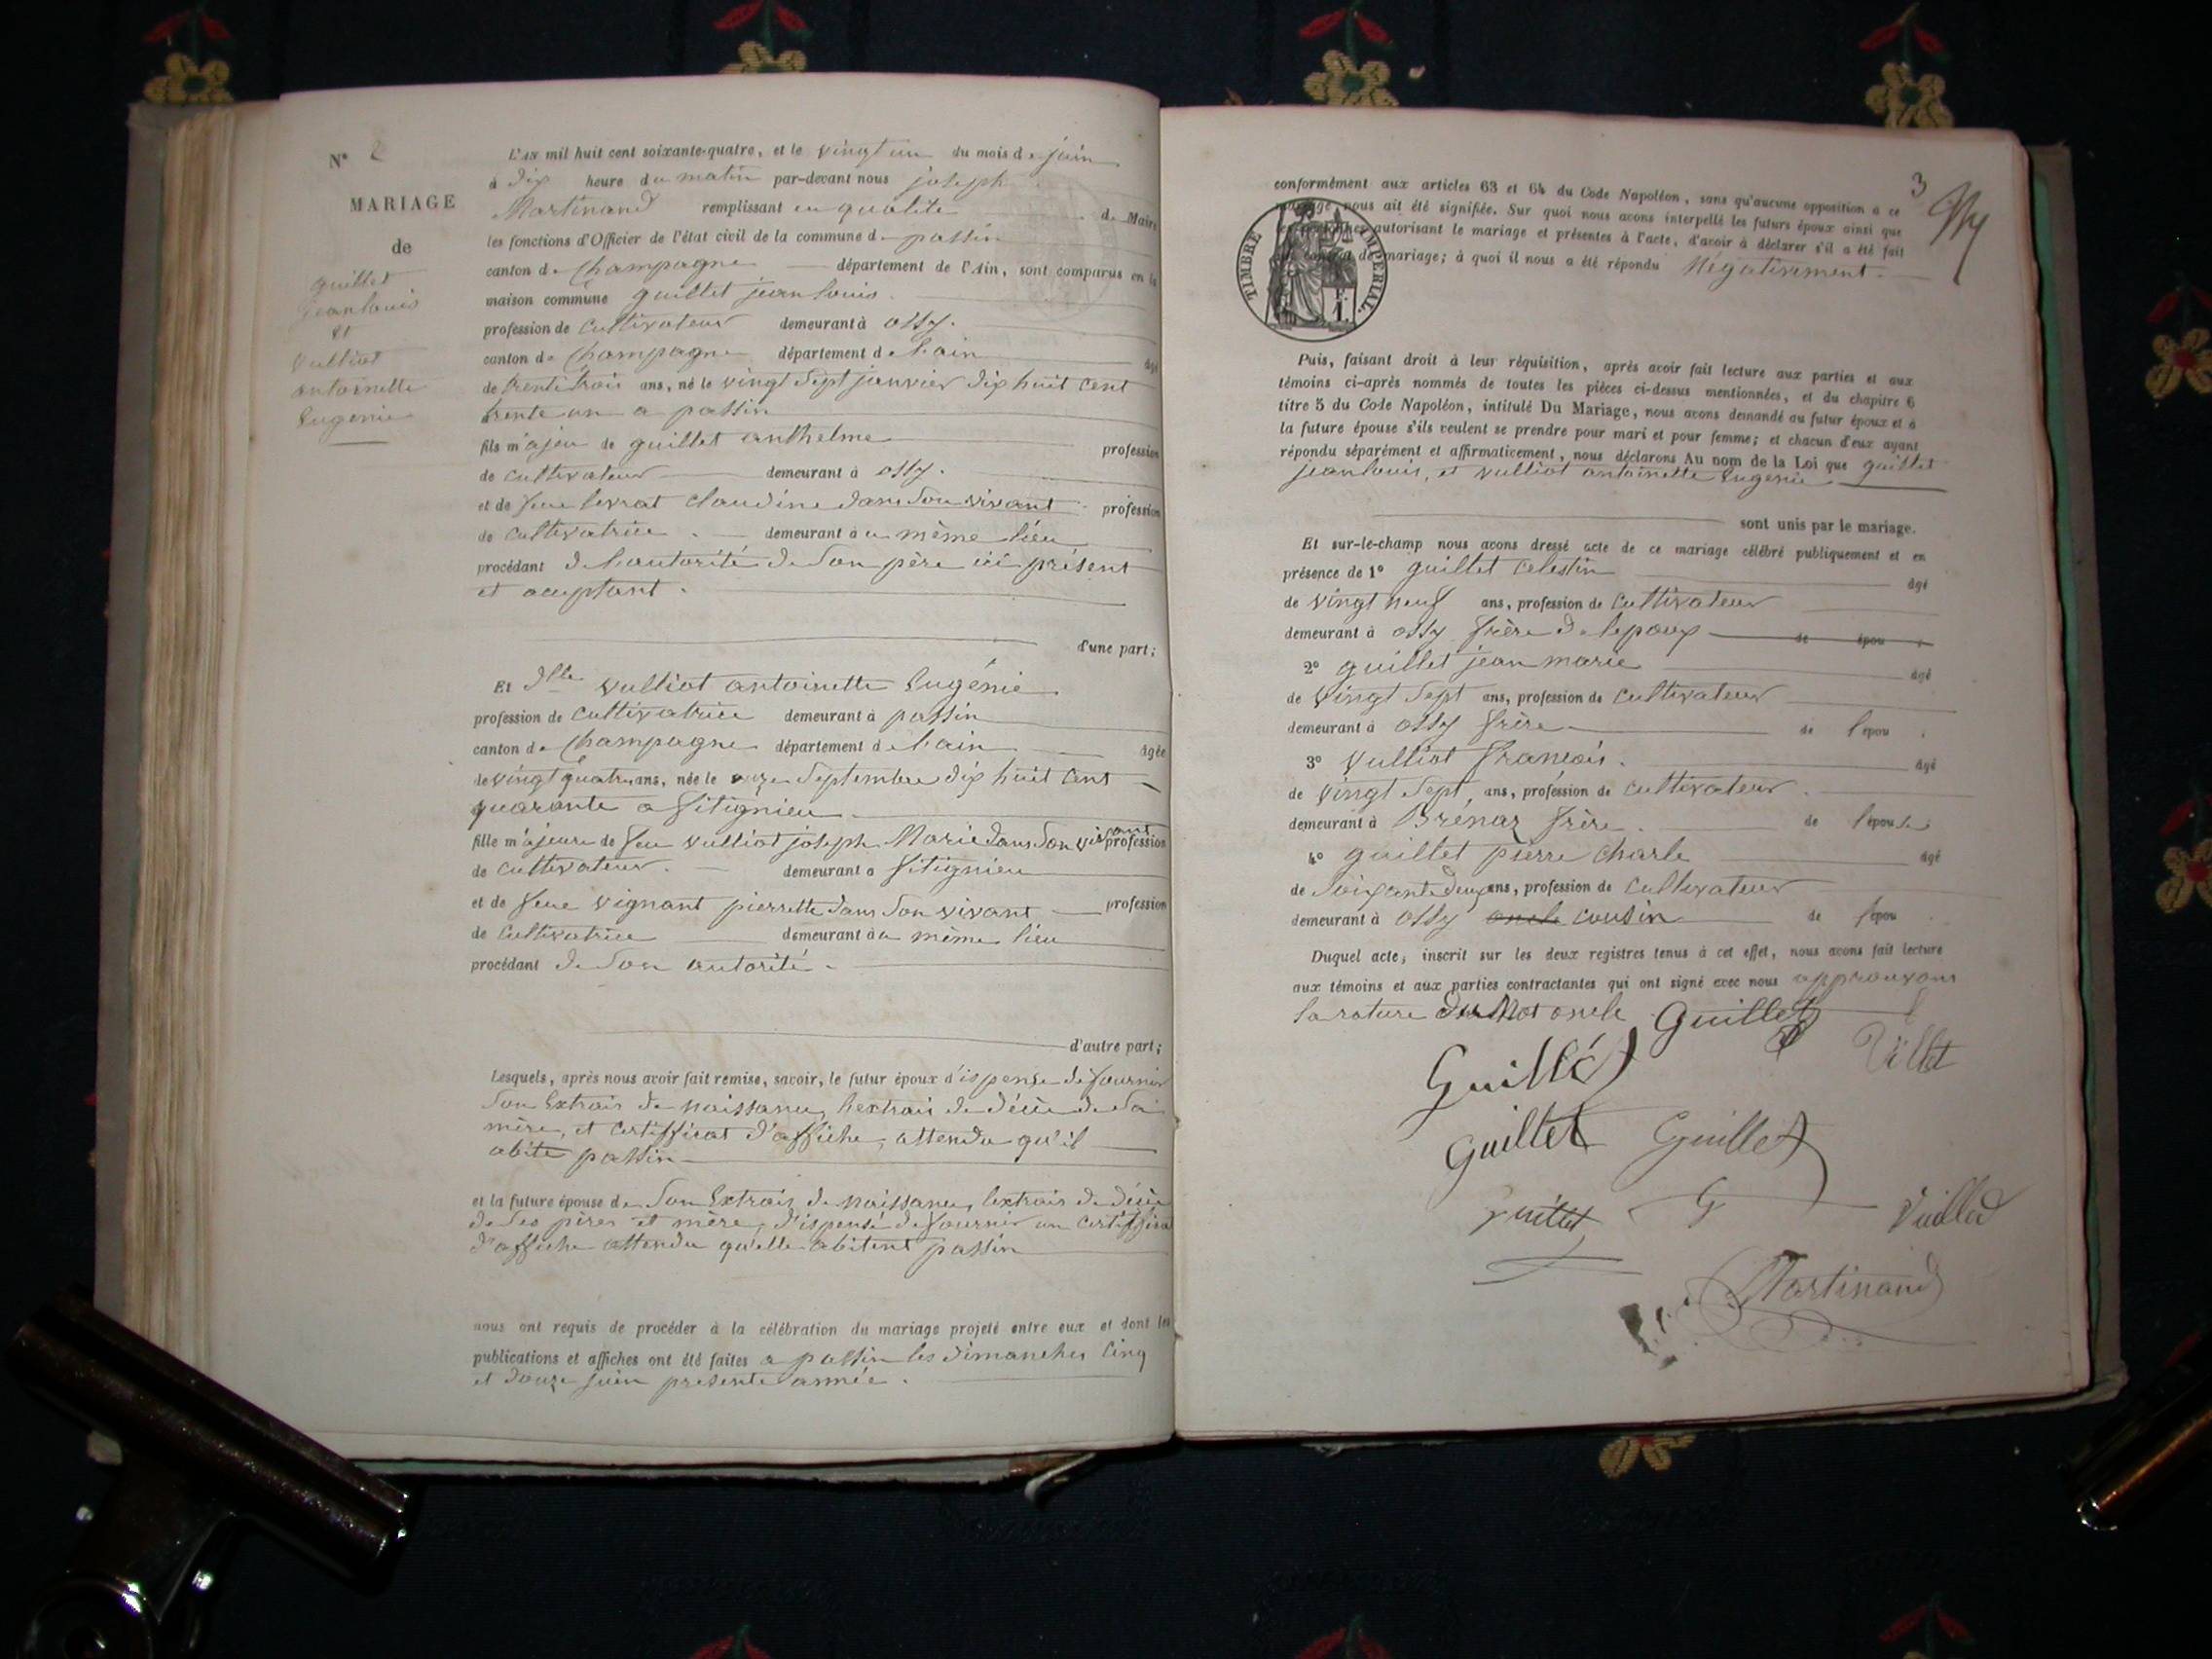 N° 2
MARIAGE
de
guillet
jean louis
et
vulliot
antoinette
Eugenie
L'AN mil huit cent soixante-quatre, et le vingt un du mois de juin
à dix heure du matin par-devant nous joseph
Martinand remplissant en qualité de Maire
les fonctions d'Officier de l'état civil de la commune de passin
canton de Champagne département de l'Ain, sont comparus en la
maison commune guillet jean louis
profession de cultivateur demeurant à ossy.
canton de Champagne département de l'ain âgé
de trente trois ans, né le vingt sept janvier dix huit cent
trente un a passin
fils majeu de guillet anthelme profession
de cultivateur demeurant à ossy.
et de feue levrat claudine dans son vivant profession
de cultivatrice demeurant à u même lieu
procédant de l'autorité de son père ici présent
et acceptant.
d'une part;
Et dlle vulliot antoinette Eugénie
profession de cultivatrice demeurant à passin
canton de Champagne département de l'ain âgée
de vingt quatre ans, née le onze septembre dix huit cent
quarante a fitignieu
fille majeure de feu vulliot joseph Marie dans son vivant profession
de cultivateur. demeurant a fitignieu
et de feue vignant pierrette dans son vivant profession
de cultivatrice demeurant à u même lieu
procédant de son autorité.
d'autre part;
Lesquels, après nous avoir fait remise, savoir, le futur époux d'ispense de fournir
son Extrais de naissance, l'extrais de décè de sa
mère, et certifficat d'affiche, attendu qu'il
abite passin
et la future épouse de son Extrais de naissance, l'extrais de décè
de ses pères et mère, d'ispensé de fournir un certiffica
d'affiche attendu qu'elle abitent passin
nous ont requis de procéder à la célébration du mariage projeté entre eux et dont les
publications et affiches ont été faites a passin les dimanches Cinq
et douze juin presente année.
3
conformément aux articles 63 et 64 du Code Napoléon, sans qu'aucune opposition a ce
mariage nous ait été signifiée. Sur quoi nous avons interpellé les futurs époux ainsi que
les personnes autorisant le mariage et présentes à l'acte, d'avoir à déclarer s'il a été fait
un contrat de mariage; à quoi il nous a été répondu Négativement.
TIMBRE IMPÉRIAL
1 F.
Puis, faisant droit à leur réquisition, après avoir fait lecture aux parties et aux
témoins ci-après nommés de toutes les pièces ci-dessus mentionnées, et du chapitre 6
titre 5 du Code Napoléon, intitulé Du Mariage, nous avons demandé au futur époux et à
la future épouse s'ils veulent se prendre pour mari et pour femme; et chacun d'eux ayant
répondu séparément et affirmativement, nous déclarons Au nom de la Loi que guillet
jean louis, et vulliot antoinette Eugenie
sont unis par le mariage.
Et sur-le-champ nous avons dressé acte de ce mariage célébré publiquement et en
présence de 1° guillet celestin âgé
de vingt neuf ans, profession de cultivateur
demeurant à ossy frère de l'epoux de épou
2° guillet jean marie âgé
de vingt sept ans, profession de cultivateur
demeurant à ossy frère de l'épou
3° vulliot françois. âgé
de vingt sept ans, profession de cultivateur.
demeurant à Brénaz frère. de l'épouse
4° guillet pierre charle âgé
de soixante deux ans, profession de cultivateur
demeurant à ossy oncle cousin de l'épou
Duquel acte, inscrit sur les deux registres tenus à cet effet, nous avons fait lecture
aux témoins et aux parties contractantes qui ont signé avec nous approuvons
la rature du Mot oncle Guillet
Guillet
Guillet Guillet
G
Martinand